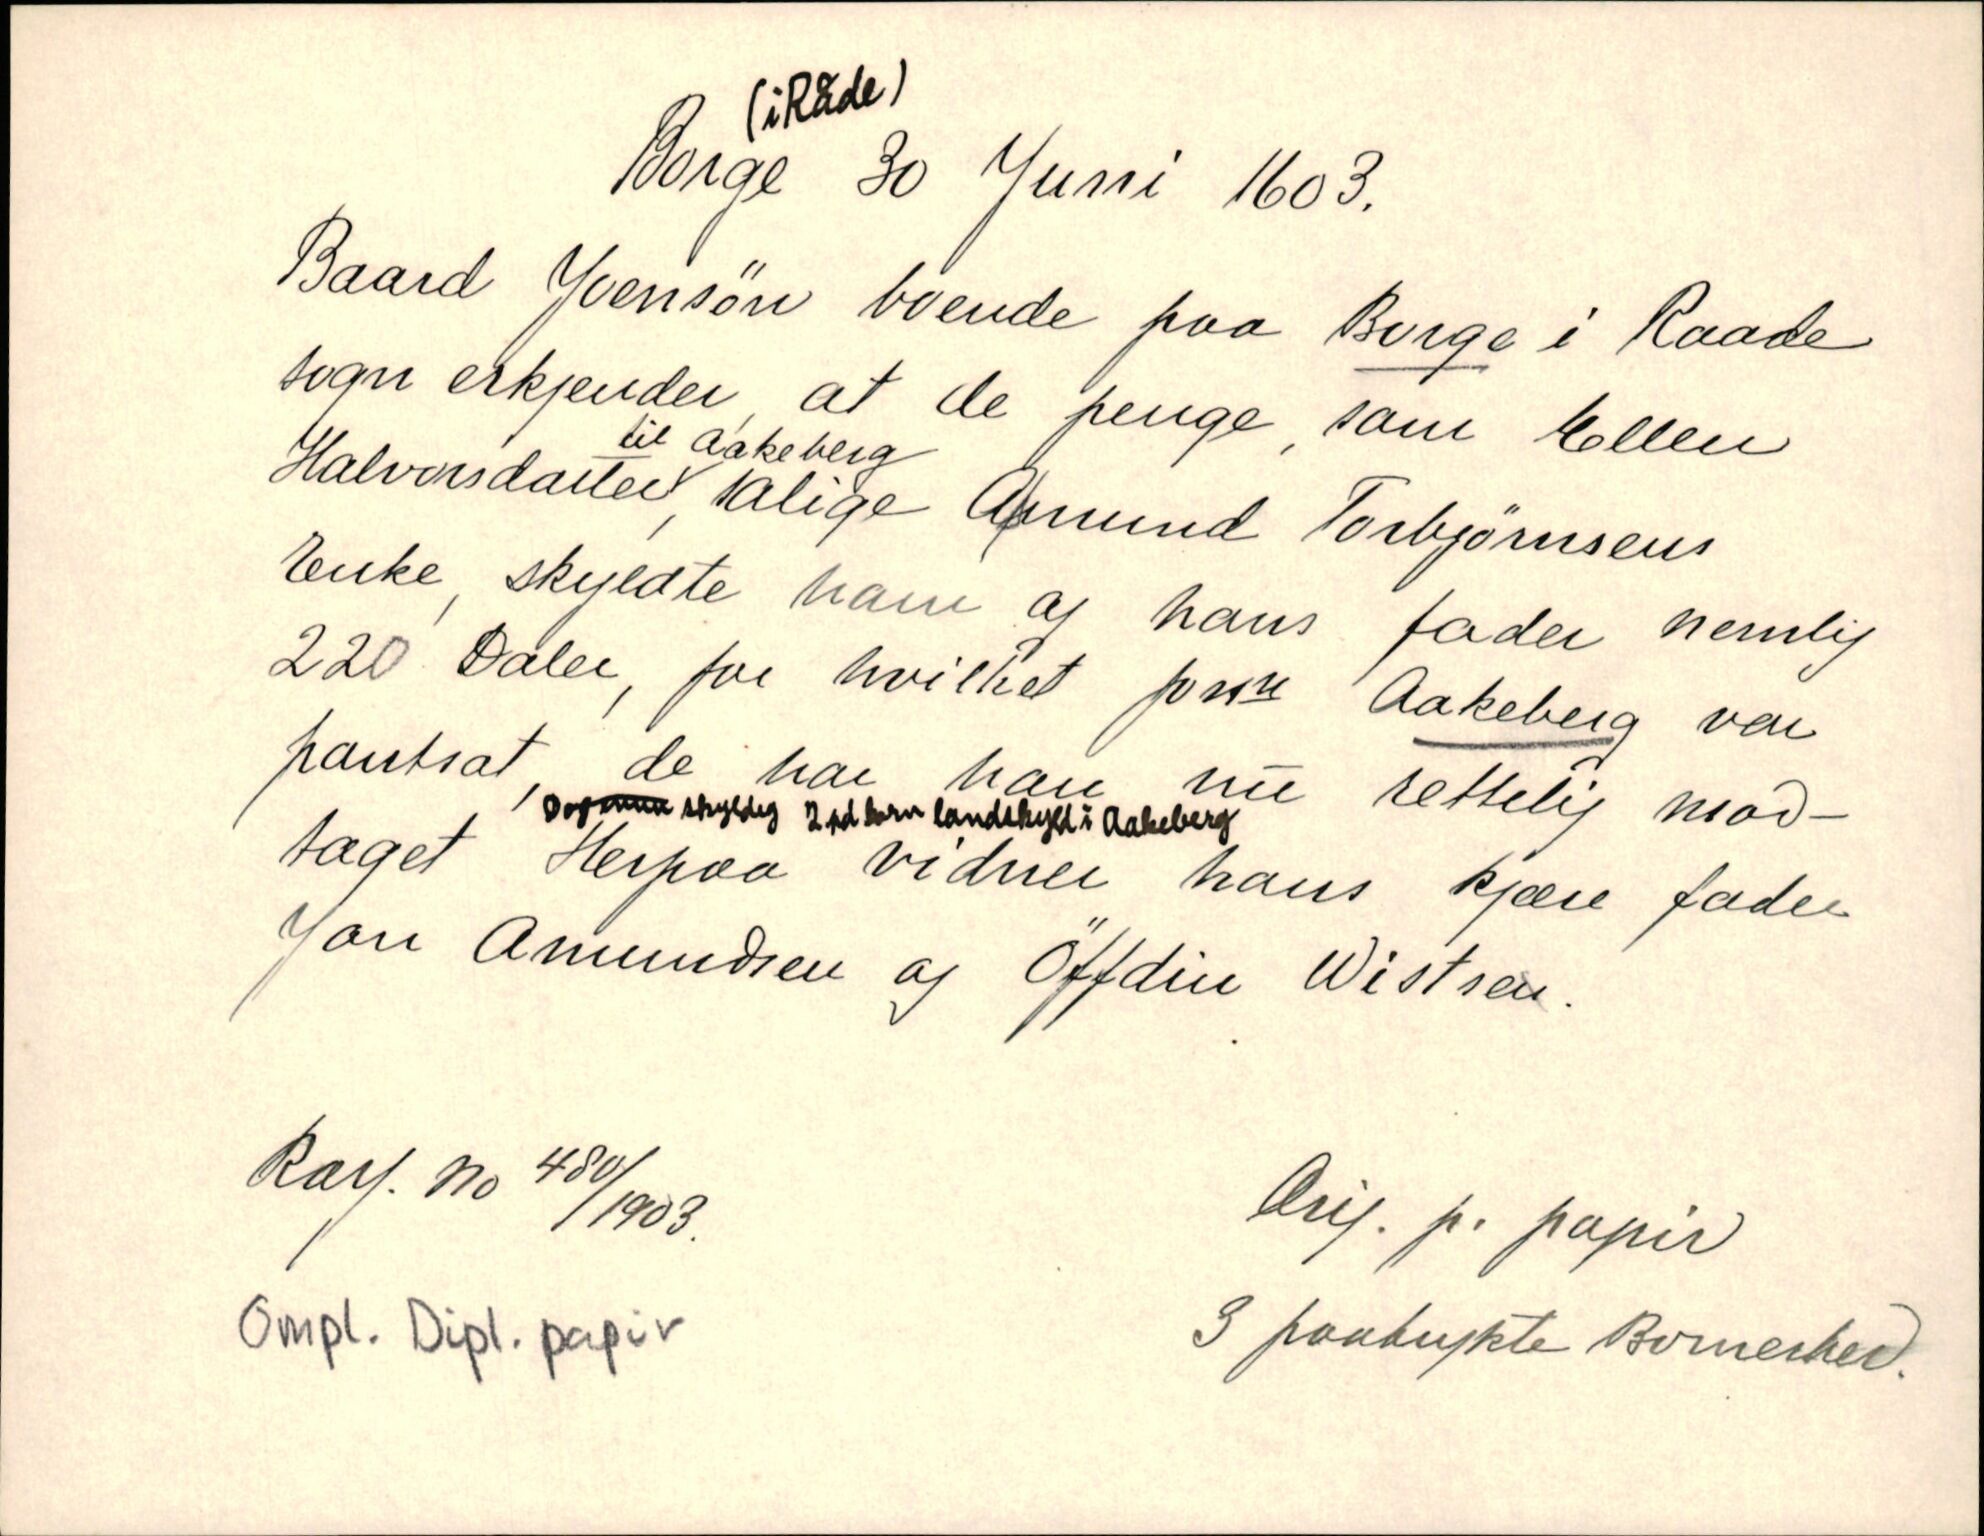 (i Råde)
Borge 30 Juni 1603.
Baard Joensön boende paa Borge i Raade
sogn erkjender, at de penge, som Ellen
til Aakeberg
Halvorsdatter, salige Amund Torbjörnsens
Enke, skyldte ham og hans fader nemlig
220 Daler, for hvilket Aakeberg var
pantsat, de har han nu rettelig mod-
skyldig 2 pd korn landskyld i Aakeberg
taget Herpaa vidner hans kjære fader
Jon Amundsen og Öffdin Wistsen.
Kasj. No 480/1903.
Orig. p. papir
Ompl. Dipl. papir
3 paatrykte Bomerker.